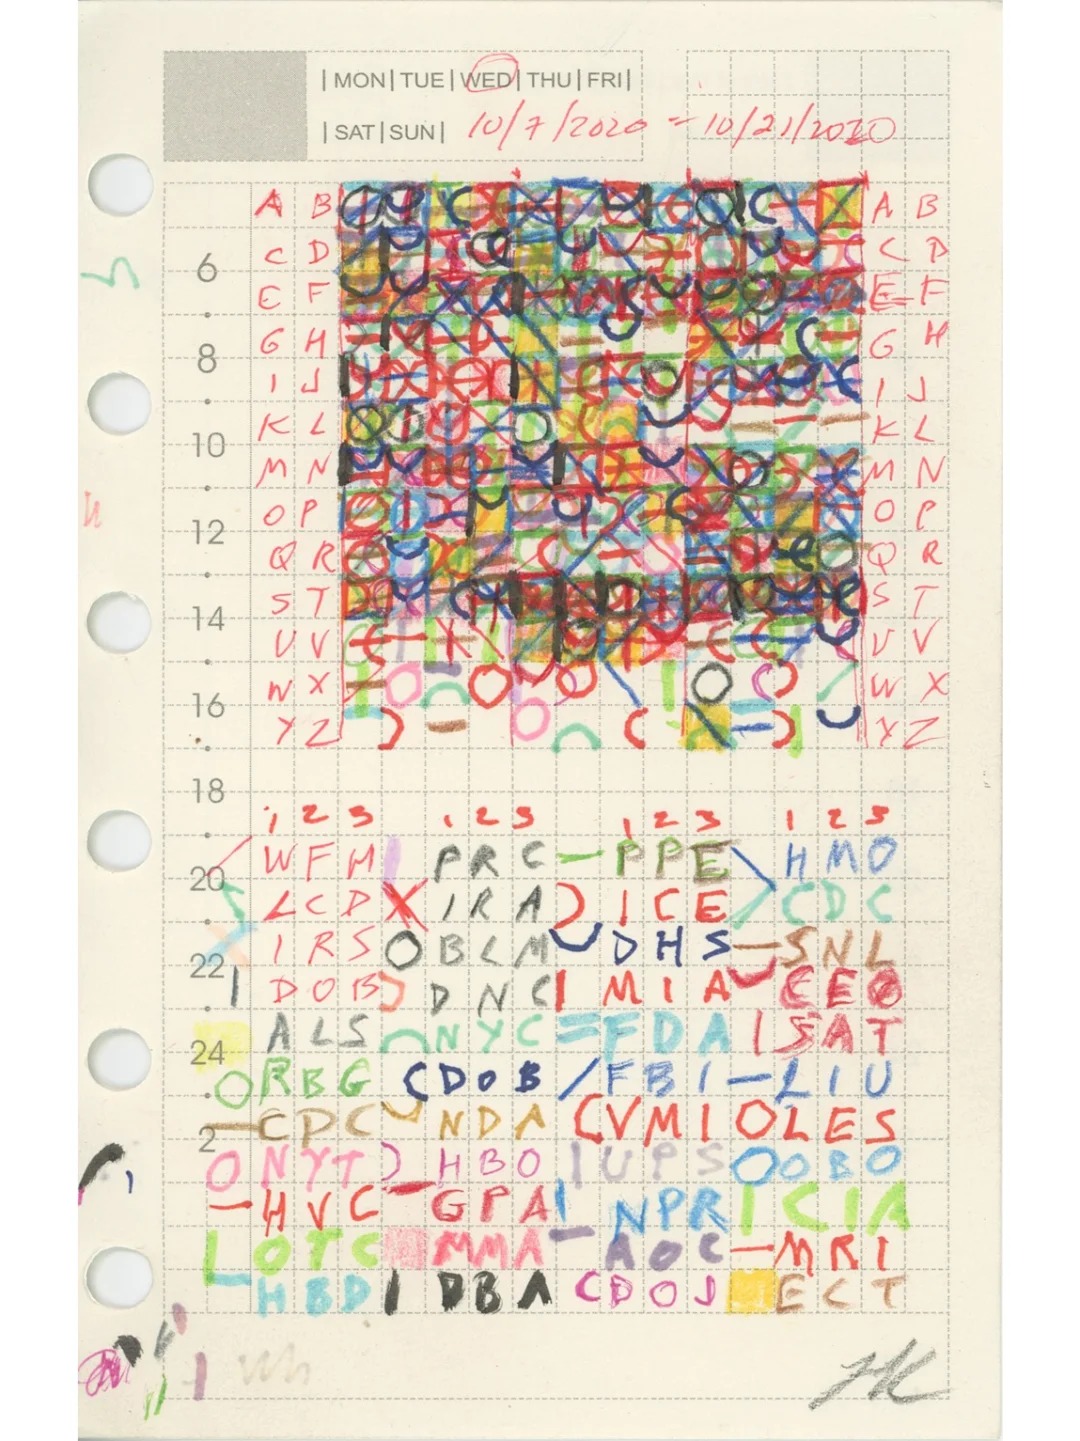 MON TUE WED THU FRI
SAT SUN 10/7/2020 - 10/21/2020
A B A B
6 C D C D
E F E F
8 G H G H
I J I J
10 K L K L
M N M N
12 O P O P
Q R Q R
14 S T S T
U V U V
16 W X W X
Y Z Y Z
18
1 2 3 1 2 3 1 2 3 1 2 3
20 WFM PRC PPE HMO
LCD IRA ICE CDC
22 IRS BLM DHS SNL
DOB DNC MIA CEO
24 ALS NYC FDA SAT
RBG DOB FBI LIU
2 CPC NDA VMI LES
NYT HBO UPS OBO
HVC GPA NPR CIA
OTC MMA AOC MRI
HBD DBA DOJ ECT
HK